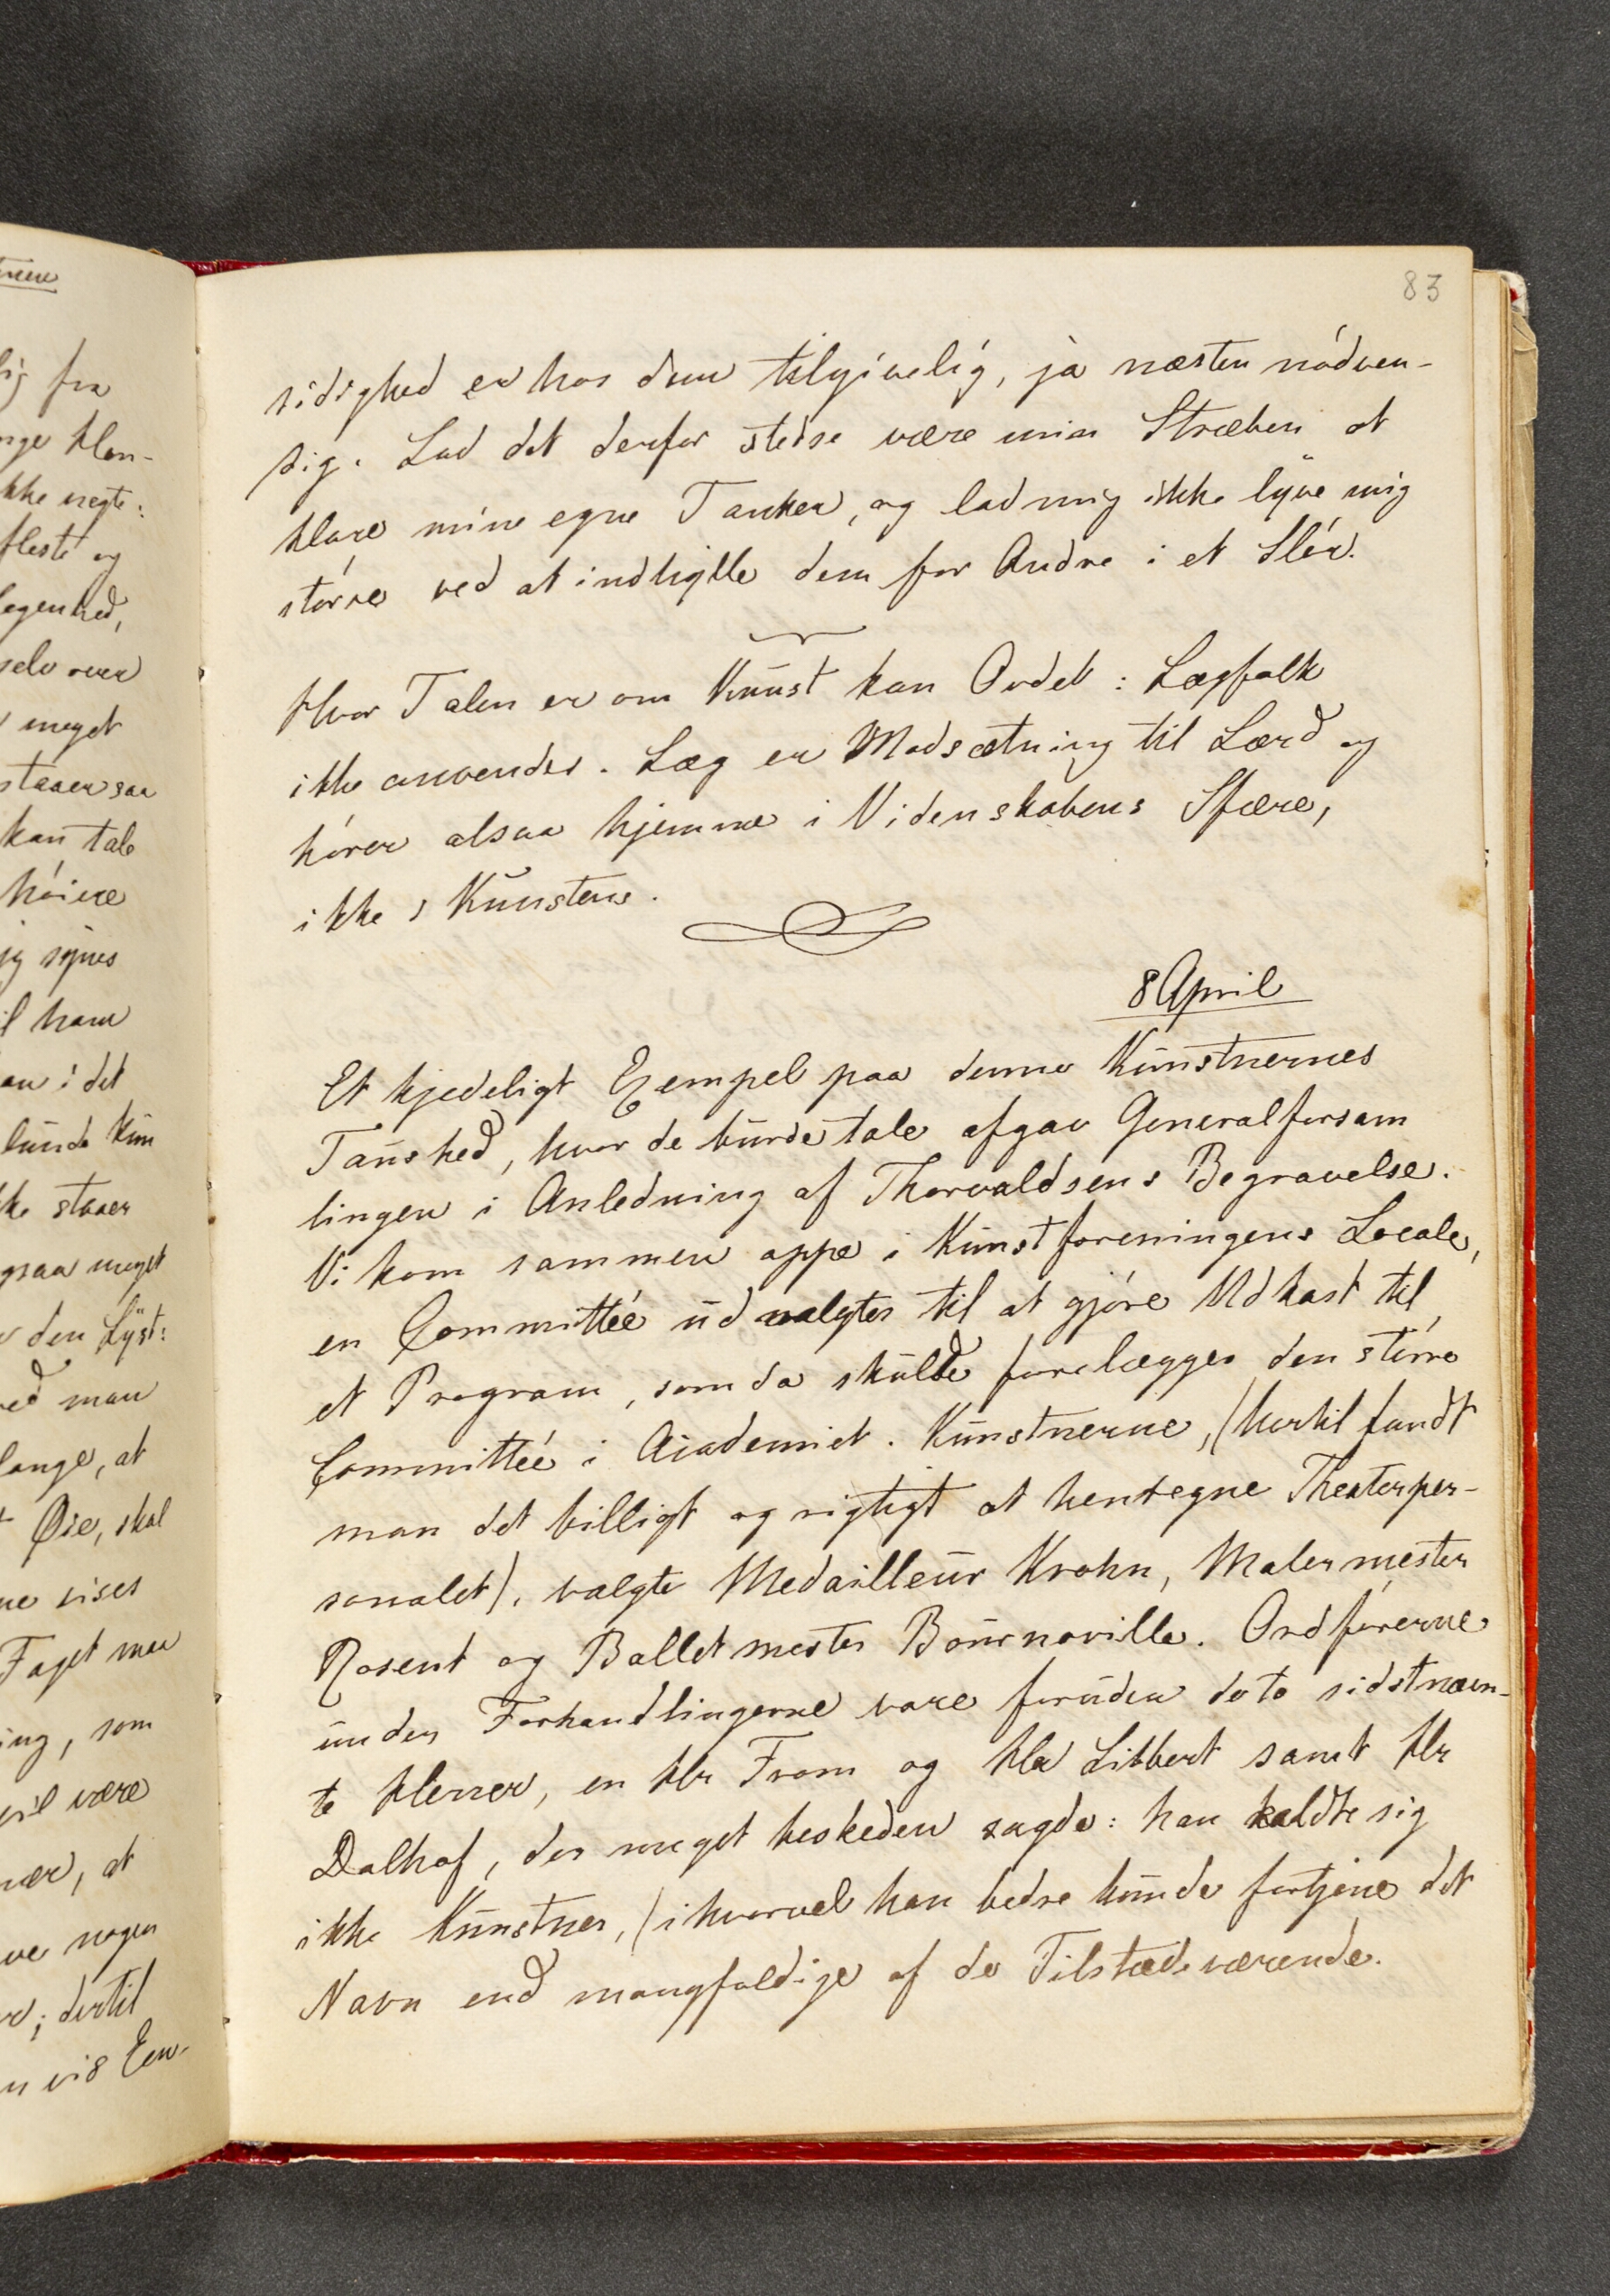 83
sidighed er hos dem tilgivelig, ja næsten nødven-
dig. Lad det derfor stedse være min Stræben at
klare mine egne Tanker, og lad mig ikke lyve mig
større ved at indhylle dem for Andre i et Slør.
Hvor Talen er om Kunst kan Ordet: Lægfolk
ikke anvendes. Læg er Modsætning til Lærd og
hører alsaa hjemme i Videnskabens Sfære,
ikke i Kunstens.
8 April
Et kjedeligt Exempel paa denne Kunstnernes
Taushed, hvor de burde tale afgav Generalforsam
lingen i Anledning af Thorvaldsens Begravelse.
Vi kom sammen oppe i Kunstforeningens Locale,
en Committeé udvalgtes til at gjøre Udkast til
et Program, som da skulde forelægges den større
Committeé i Academiet. Kunstnerne, (hertil fandt
man det billigt og rigtigt at henregne Theaterper-
sonalet), valgte Medailleur Krohn, Malermester
Rosent og Balletmester Bournoville. Ordførerne
under Forhandlingerne vare foruden de to sidstnævn-
te Herrer, en Hr From og Hr Libbert samt Hr
Dalhof, der meget beskeden sagde: han kaldte sig
ikke Kunstner, (ihvorvel han bedre kunde fortjene det
Navn end mangfoldige af de Tilstedeværende.
lig fra
ikke negte:
fleste og
legenhed,
selv over
meget
staaer saa
kan tale
høiere
jeg synes
til ham
an i det
lunde kun
ikke staaer
ogsaa meget
den Lyst:
ved man
lange, at
Øie, skal
vises
Faget men
som
vil være
at
nogen
dertil
vis Een-